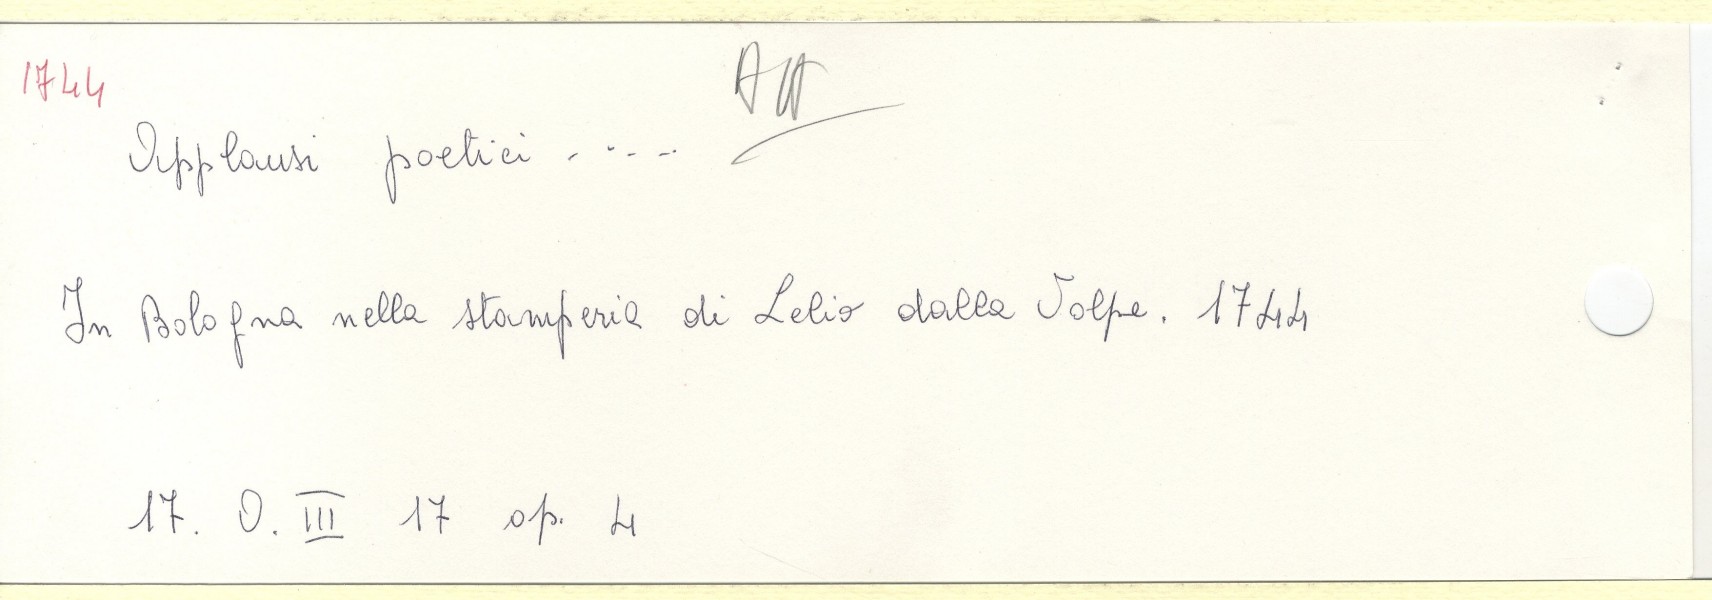 1744
Applausi poetici . . . . .
In Bologna nella stamperia di Lelio dalla Volpe. 1744
17. O. III 17 op. 4